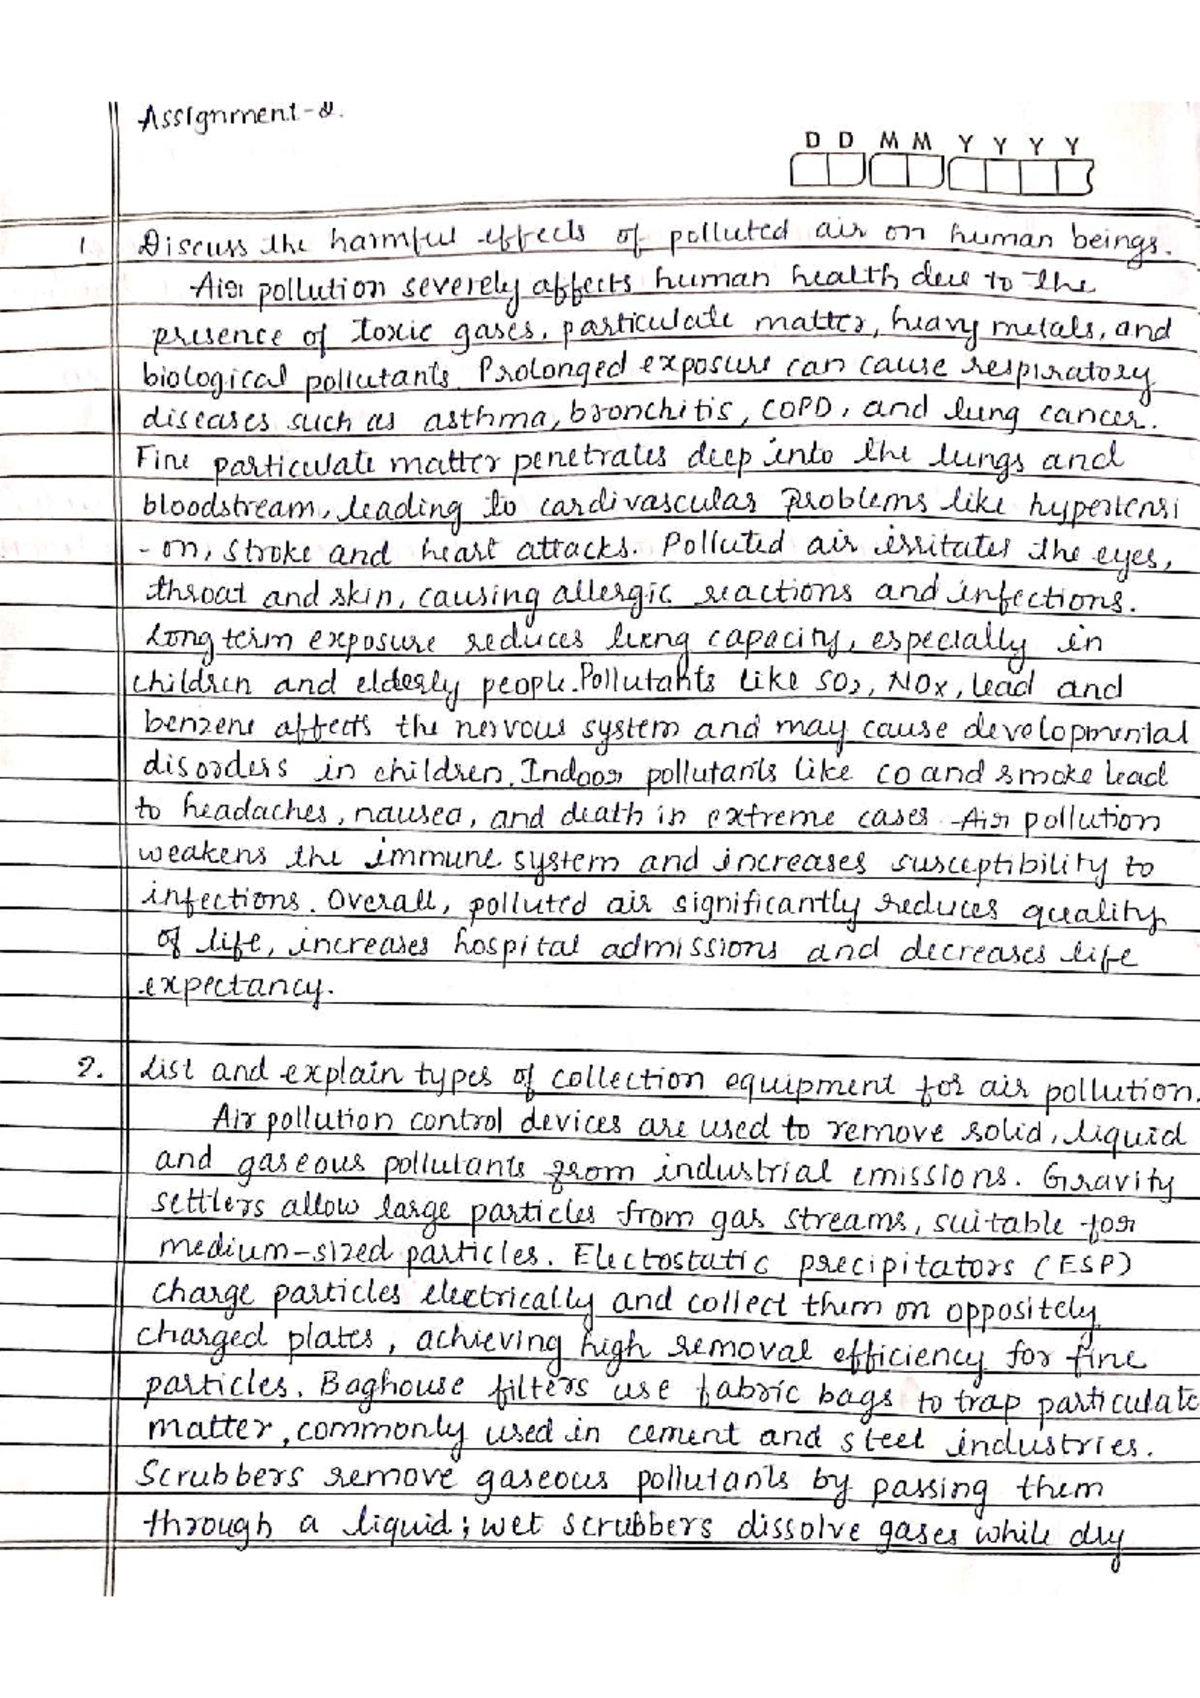 Assignment-2.
D D M M Y Y Y Y
1. Discuss the harmful effects of polluted air on human beings.
Air pollution severely affects human health due to the
presence of toxic gases, particulate matter, heavy metals, and
biological pollutants. Prolonged exposure can cause respiratory
diseases such as asthma, bronchitis, COPD, and lung cancer.
Fine particulate matter penetrates deep into the lungs and
bloodstream, leading to cardivascular problems like hypertensi
-on, stroke and heart attacks. Polluted air irritates the eyes,
throat and skin, causing allergic reactions and infections.
Long term exposure reduces lung capacity, especially in
children and elderly people. Pollutants like SO2, NOx, lead and
benzene affects the nervous system and may cause developmental
disorders in children. Indoor pollutants like CO and smoke lead
to headaches, nausea, and death in extreme cases. Air pollution
weakens the immune system and increases susceptibility to
infections. Overall, polluted air significantly reduces quality
of life, increases hospital admissions and decreases life
expectancy.
2. List and explain types of collection equipment for air pollution.
Air pollution control devices are used to remove solid, liquid
and gaseous pollutants from industrial emissions. Gravity
settlers allow large particles from gas streams, suitable for
medium-sized particles. Electostatic precipitators (ESP)
charge particles electrically and collect them on oppositely
charged plates, achieving high removal efficiency for fine
particles. Baghouse filters use fabric bags to trap particulate
matter, commonly used in cement and steel industries.
Scrubbers remove gaseous pollutants by passing them
through a liquid; wet scrubbers dissolve gases while dry